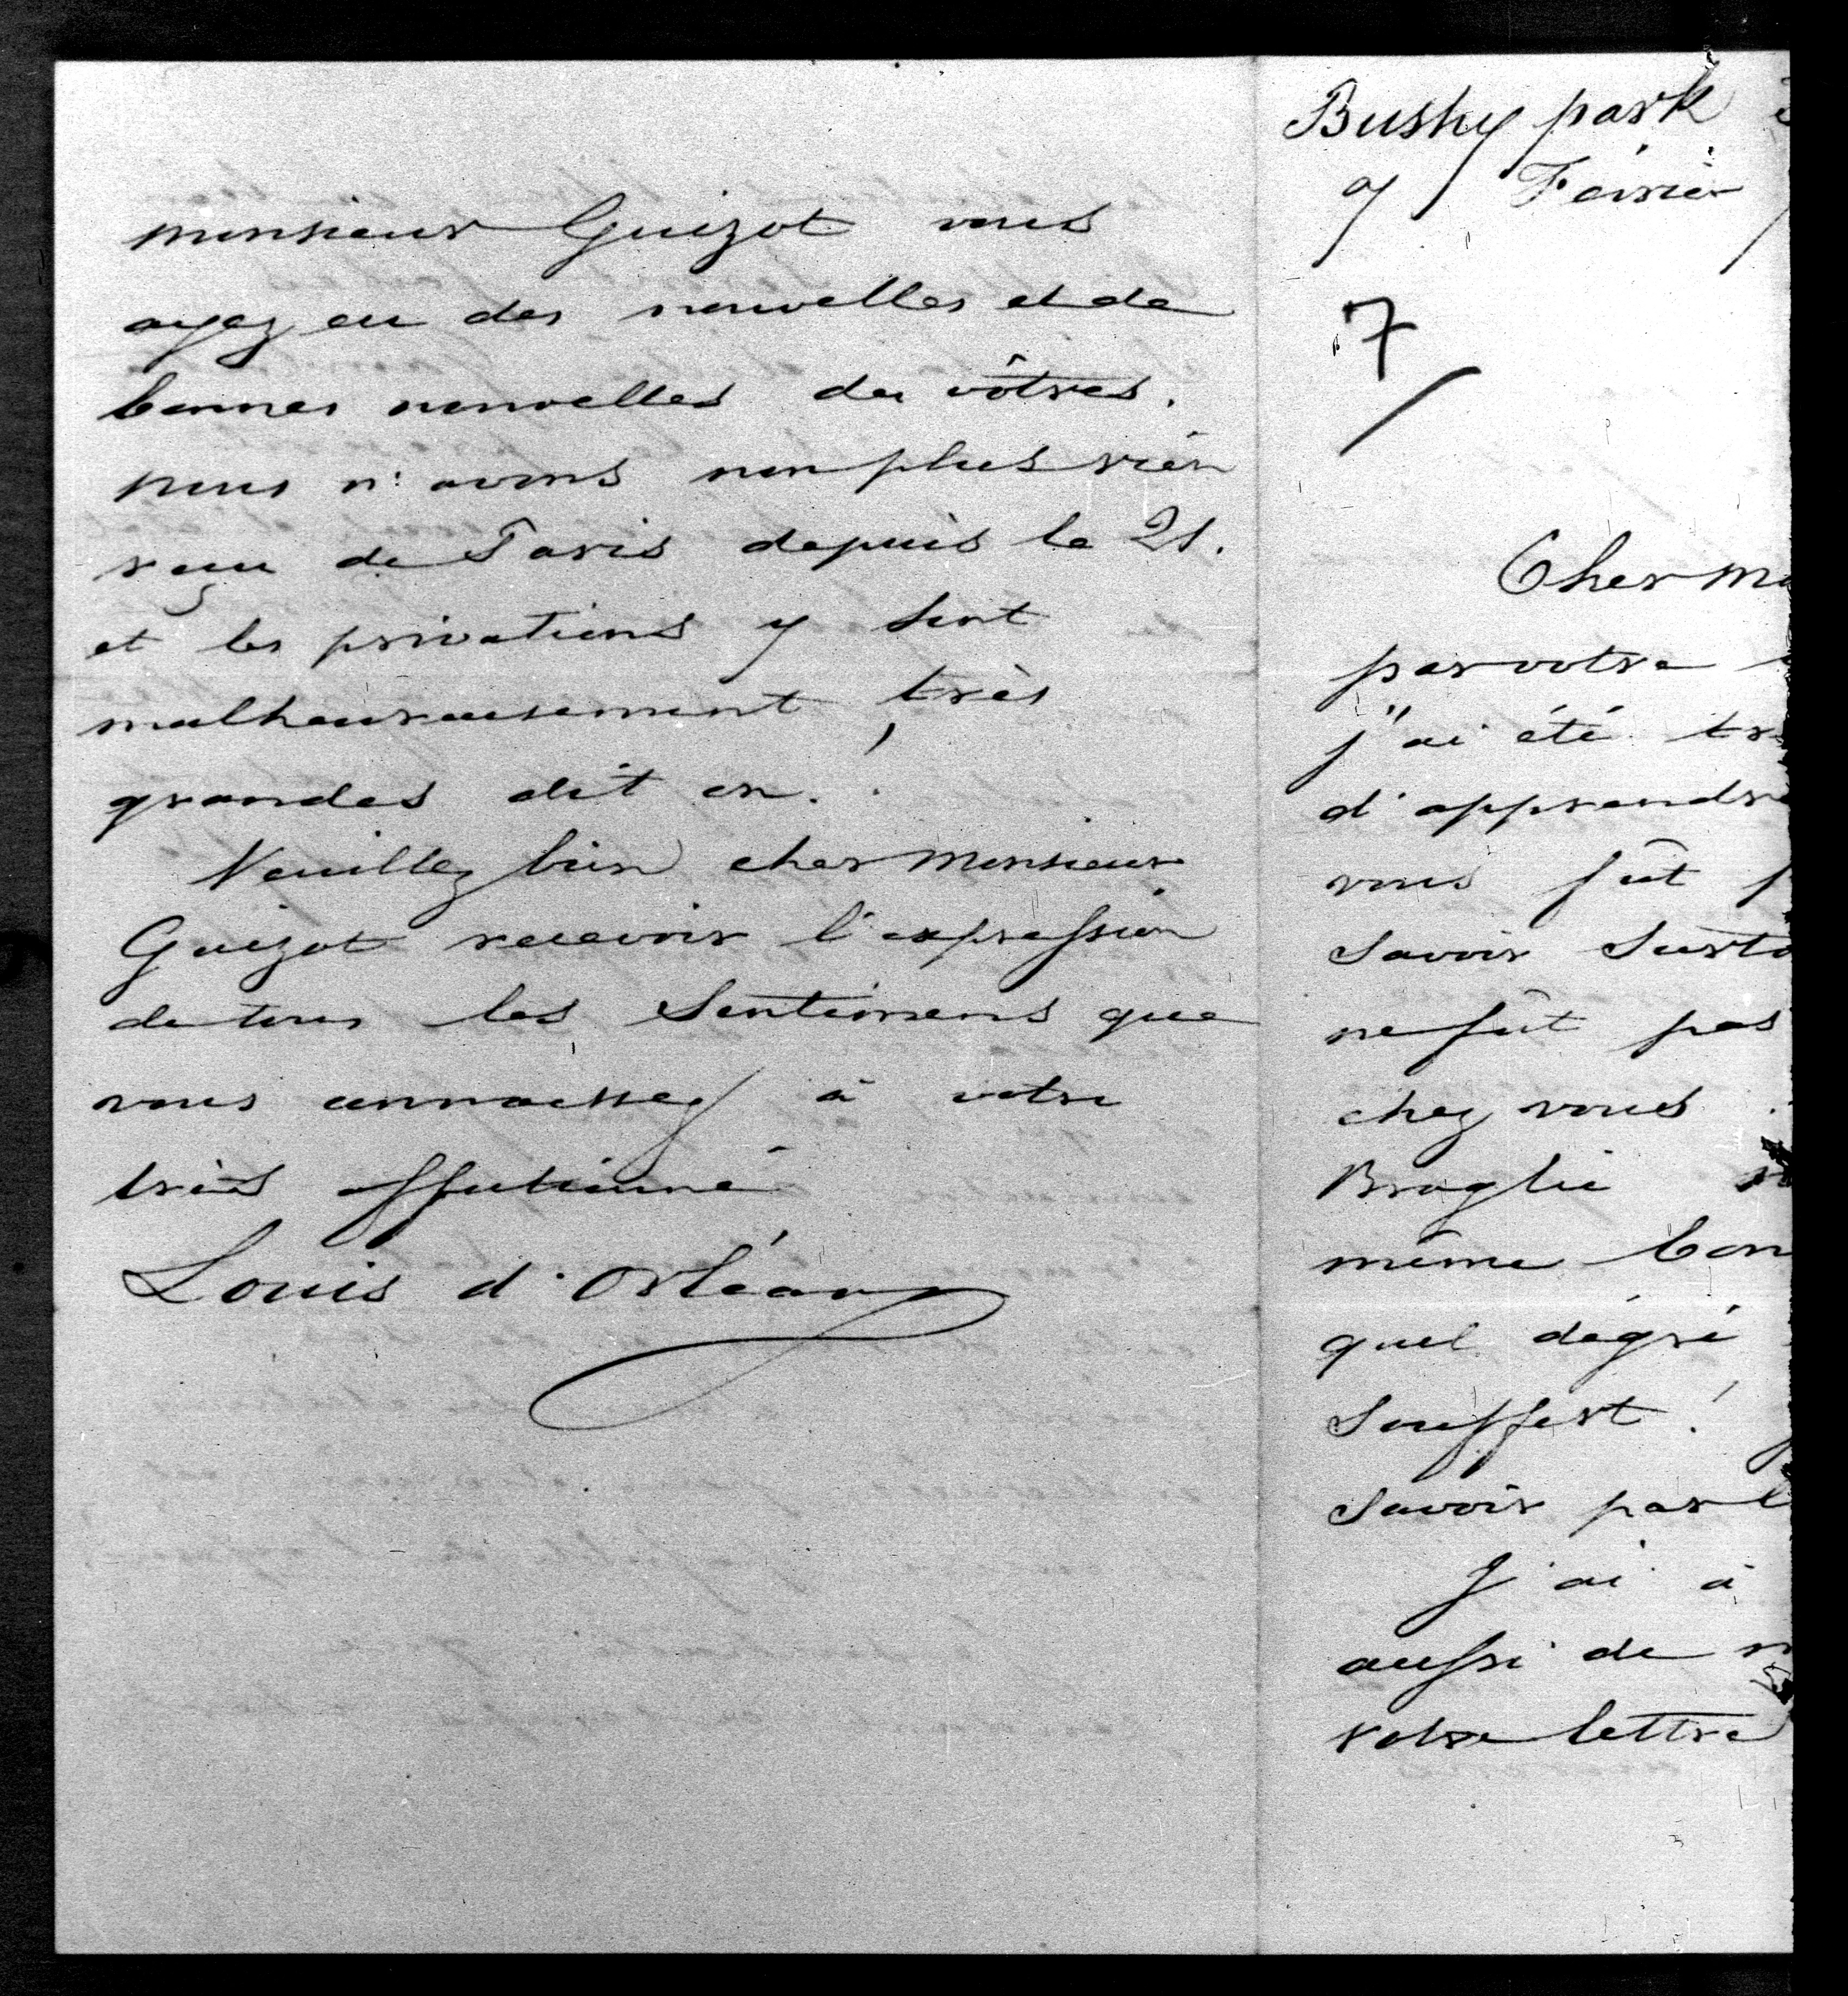 monsieur Guizot vous
ayez eu des nouvelles et de
bonnes nouvelles des vôtres.
nous n'avons non plus rien
reçu de Paris depuis le 21.
et les privations y sont
malheureusement, très
grandes dit on.
Veuillez bien cher Monsieur
Guizot recevoir l'expression
de tous les Sentimens que
vous connaissez à votre
très affectionné
Louis d'Orléans
Bushy park
9 Février
7
Cher Mo
par votre
j'ai été tr
d'apprendre
vous fut
Savoir Surto
ne fut pas
chez vous
Broglie
même bon
quel dégré
Souffert !
Savoir par l
J'ai à
aussi de
votre lettre